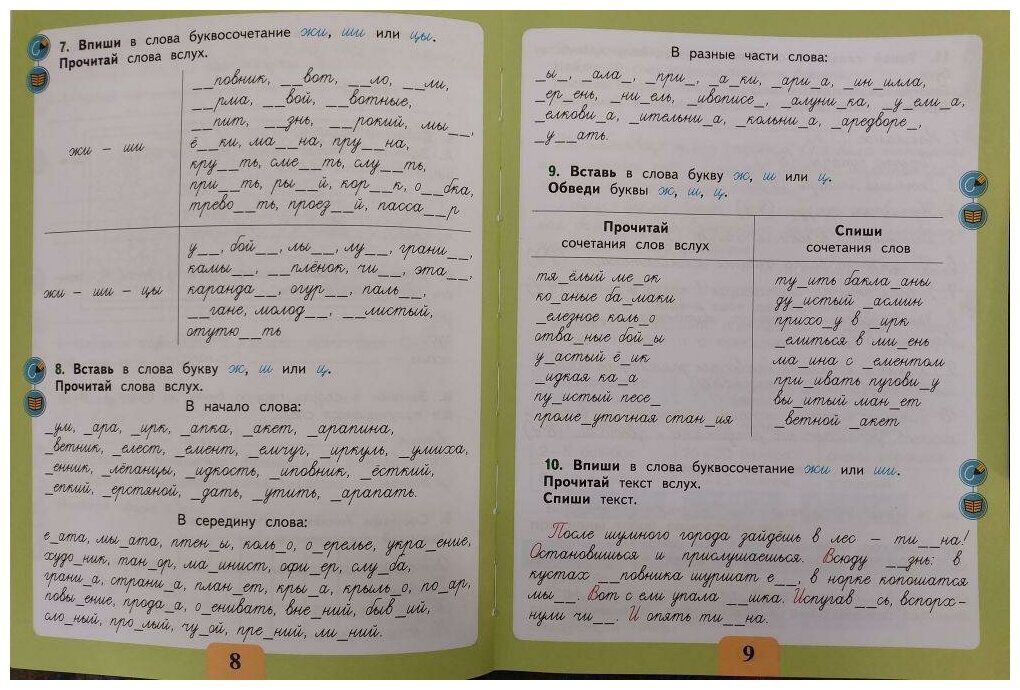 7. Впиши в слова буквосочетание жи, ши или цы.
Прочитай слова вслух.
жи – ши
__повник, __вот, __ло, __ли,
__рма, __вой, __вотные,
__пит, __знь, __рокий, мы__,
ё__ки, ма__на, пру__на,
кру__ть, сме__ть, слу__ть,
при__ть, ры__й, кор__к, о__бка,
трево__ть, проез__й, пасса__р
жи – ши – цы
у__, бой__, лы__, лу__, грани__,
камы__, __плёнок, чи__, эта__,
каранда__, огур__, паль__,
__гане, молод__, __листый,
отутю__ть
8. Вставь в слова букву ж, ш или ц.
Прочитай слова вслух.
В начало слова:
_ум, _ара, _ирк, _апка, _акет, _арапина,
_ветник, _елест, _емент, _емчуг, _иркуль, _умиха,
_енник, _лёпанцы, _идкость, _иповник, _ёсткий,
_епкий, _ерстяной, _дать, _утить, _арапать.
В середину слова:
е_ата, мы_ата, птен_ы, коль_о, о_ерелье, укра_ение,
худо_ник, тан_ор, ма_инист, офи_ер, слу_ба,
грани_а, страни_а, план_ет, кры_а, крыль_о, по_ар,
повы_ение, прода_а, о_енивать, вне_ний, быв_ий,
сло_ный, про_лый, чу_ой, пре_ний, ли_ний.
8
В разные части слова:
_ы_, _ала_, _при_, _а_ки, _ари_а, _ин_илла,
_ер_ень, _ни_ель, _ивописе_, _алуни_ка, _у_ели_а,
_елкови_а, _ительни_а, _кольни_а, _аредворе_,
_у__ать.
9. Вставь в слова букву ж, ш или ц.
Обведи буквы ж, ш, ц.
Прочитай
сочетания слов вслух
тя_ёлый ме_ок
ко_аные ба_маки
_елезное коль_о
отва_ные бой_ы
у_астый ё_ик
_идкая ка_а
пу_истый песе_
проме_уточная стан_ия
Спиши
сочетания слов
ту_ить бакла_аны
ду_истый _асмин
прихо_у в _ирк
_елиться в ми_ень
ма_ина с _ементом
при_ивать пугови_у
вы_итый ман_ет
_ветной _акет
10. Впиши в слова буквосочетание жи или ши.
Прочитай текст вслух.
Спиши текст.
После шумного города зайдёшь в лес – ти__на!
Остановишься и прислушаешься. Всюду __знь: в
кустах __повника шуршат е__, в норке копошатся
мы__. Вот с ели упала __шка. Испугав__сь, вспорх-
нули чи__. И опять ти__на.
9